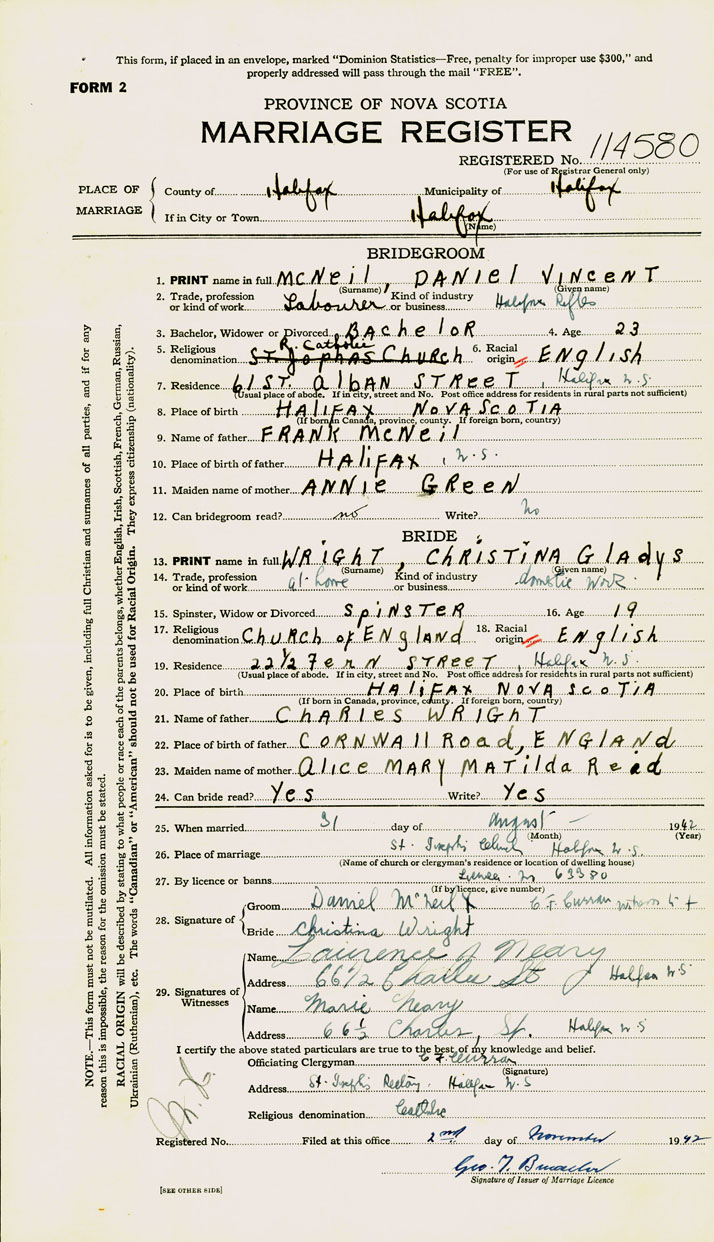 This form, if placed in an envelope, marked "Dominion Statistics—Free, penalty for improper use $300," and
properly addressed will pass through the mail "FREE".
FORM 2
PROVINCE OF NOVA SCOTIA
MARRIAGE REGISTER
REGISTERED No. 114580
(For use of Registrar General only)
PLACE OF MARRIAGE
County of Halifax Municipality of Halifax
If in City or Town Halifax
(Name)
BRIDEGROOM
1. PRINT name in full McNeil, DANiEl VINCENT
(Surname) (Given name)
2. Trade, profession or kind of work Labourer Kind of industry or business Halifax Rifles
3. Bachelor, Widower or Divorced BAchEloR 4. Age 23
5. Religious denomination R. Catholic St Jophas Church 6. Racial origin ENglish
7. Residence 61 ST. AlbAN STREET, Halifax N.S.
(Usual place of abode. If in city, street and No. Post office address for residents in rural parts not sufficient)
8. Place of birth HALiFAX NOVA SCOTIA
(If born in Canada, province, county. If foreign born, country)
9. Name of father FRANK McNEil
10. Place of birth of father HALiFAX, N.S.
11. Maiden name of mother ANNiE GREEN
12. Can bridegroom read? no Write? No
BRIDE
13. PRINT name in full WRIGHT, CHRISTINA GlAdys
(Surname) (Given name)
14. Trade, profession or kind of work at home Kind of industry or business domestic work.
15. Spinster, Widow or Divorced SPiNSTER 16. Age 19
17. Religious denomination Church of ENGlANd 18. Racial origin ENglish
19. Residence 22½ FERN STREET, Halifax N.S.
(Usual place of abode. If in city, street and No. Post office address for residents in rural parts not sufficient)
20. Place of birth HALiFAX NOVA ScoTiA
(If born in Canada, province, county. If foreign born, country)
21. Name of father CHARlES WRIGHT
22. Place of birth of father CORNWAll Road, ENGLANd
23. Maiden name of mother Alice MARY MATilda Read
24. Can bride read? Yes Write? Yes
25. When married 31 day of August 1942
(Month) (Year)
26. Place of marriage St. Joseph's Church Halifax N.S.
(Name of church or clergyman's residence or location of dwelling house)
27. By licence or banns License No 63380
(If by licence, give number)
28. Signature of
Groom Daniel McNeil X C. F. Curran witness to +
Bride Christina Wright
29. Signatures of Witnesses
Name Laurence J Neary
Address 66½ Charles St Halifax N S
Name Marie Neary
Address 66½ Charles, St. Halifax N S
I certify the above stated particulars are true to the best of my knowledge and belief.
Officiating Clergyman C. F. Curran
(Signature)
Address St. Joseph's Rectory. Halifax N.S
Religious denomination Catholic
Registered No. Filed at this office 2nd day of November 1942
Geo. T.
Signature of Issuer of Marriage Licence
[SEE OTHER SIDE]
NOTE.—This form must not be mutilated. All information asked for is to be given, including full Christian and surnames of all parties, and if for any
reason this is impossible, the reason for the omission must be stated.
RACIAL ORIGIN will be described by stating to what people or race each of the parents belongs, whether English, Irish, Scottish, French, German, Russian,
Ukrainian (Ruthenian), etc. The words "Canadian" or "American" should not be used for Racial Origin. They express citizenship (nationality).